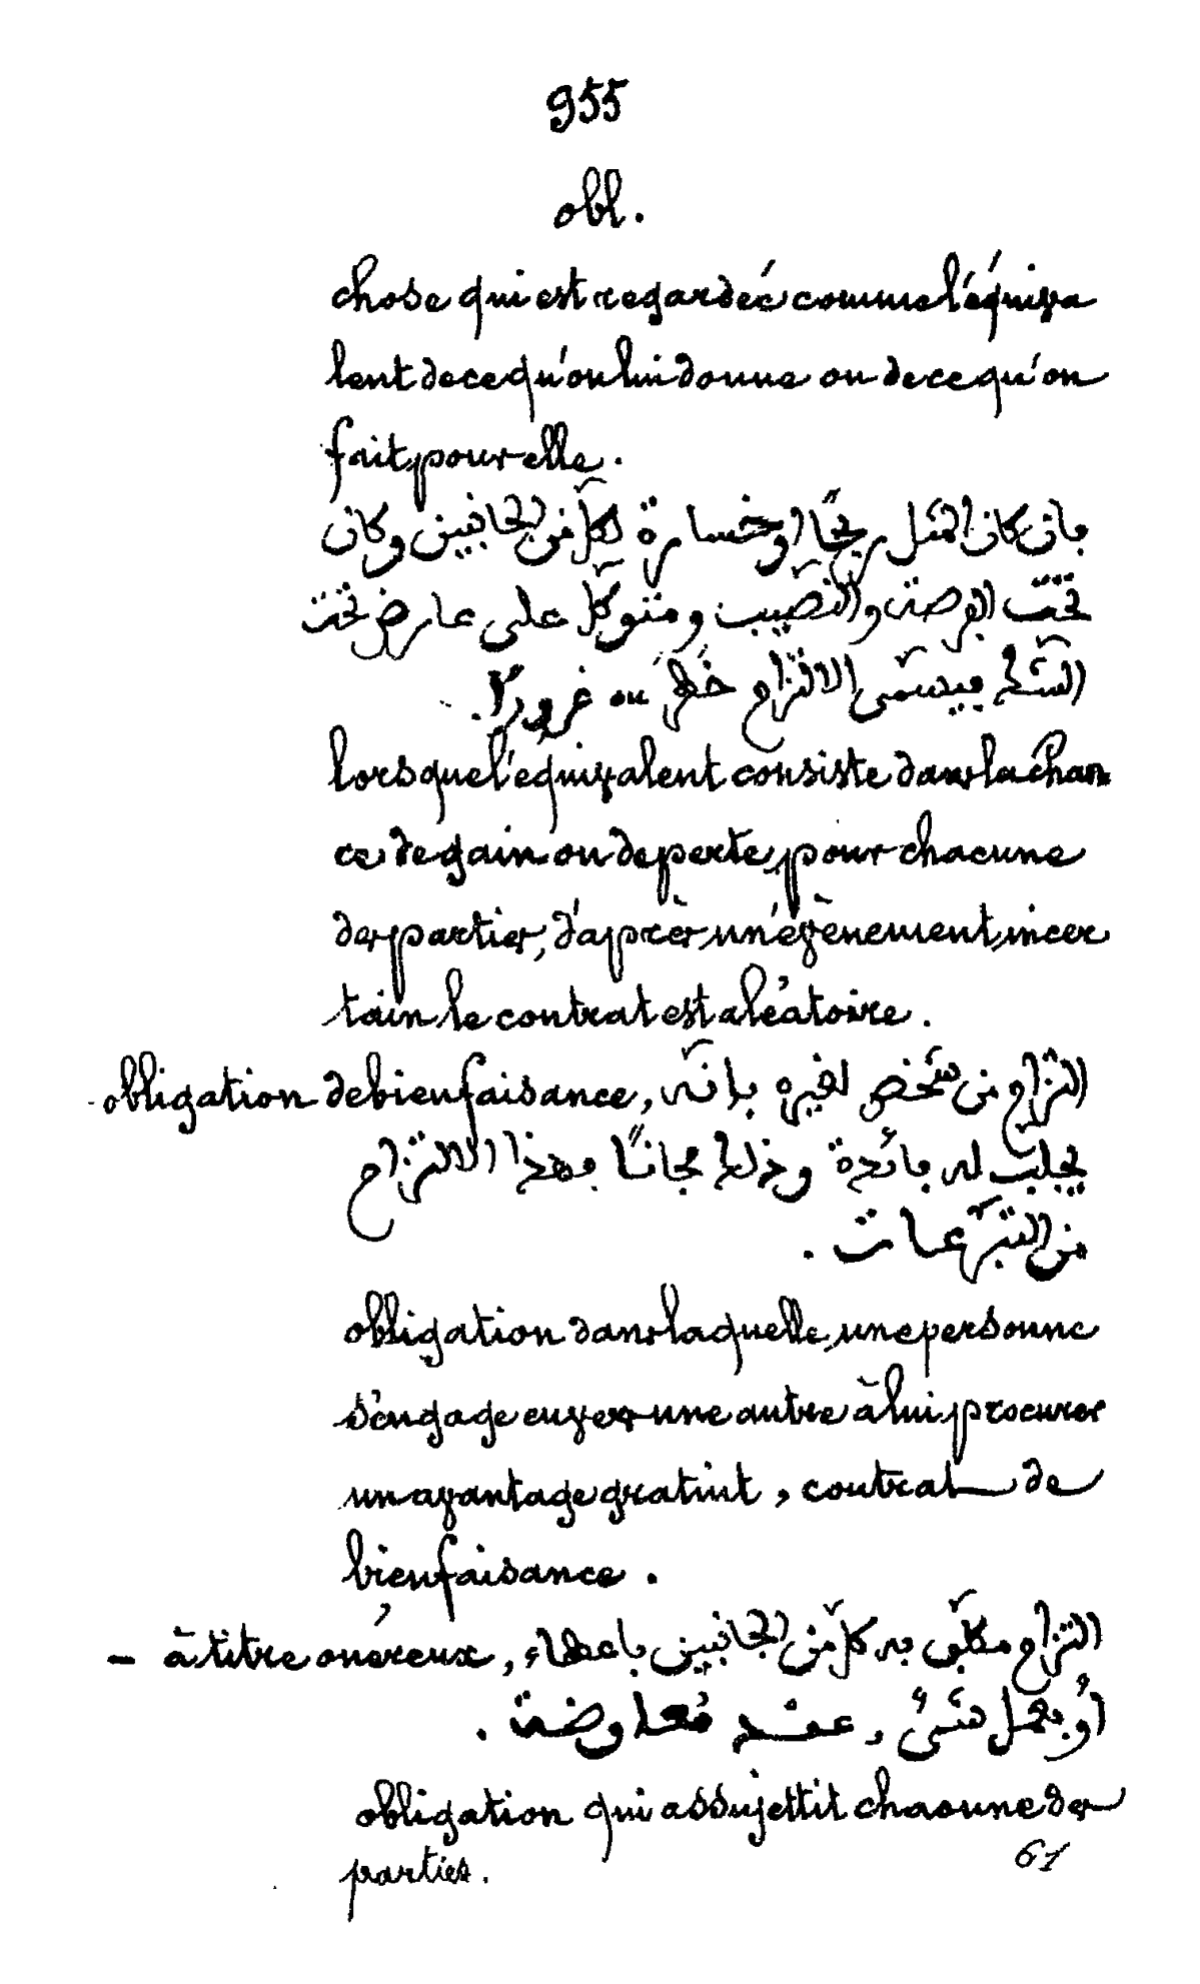 955
obl.
chose qui est regardée comme l'équiva
lent de ce qu'on lui donne ou de ce qu'on
fait pour elle.
فان كان المثل ربحًا او خسارة لكلّ من الجانبين وكان
تحت الفرصة والنصيب ومتوكّل على عارض تحت
الشكّ فيسمّى الالتزام خطر ou غرورًا.
lorsque l'équivalent consiste dans la chan
ce de gain ou de perte pour chacune
des parties, d'après un évènement incer
tain le contrat est aléatoire.
obligation de bienfaisance, التزام من شخص لغيره بانّه
يجلب له فائدة وذلك مجانًا فهذا الالتزام
من التبرّعات.
obligation dans laquelle une personne
s'engage envers une autre à lui procurer
un avantage gratuit, contrat de
bienfaisance.
— à titre onéreux, التزام مكلّف به كلّ من الجانبين باعطاء
أو بعمل شئ, عقد مُعاوضة.
obligation qui assujettit chacune des
parties.
61